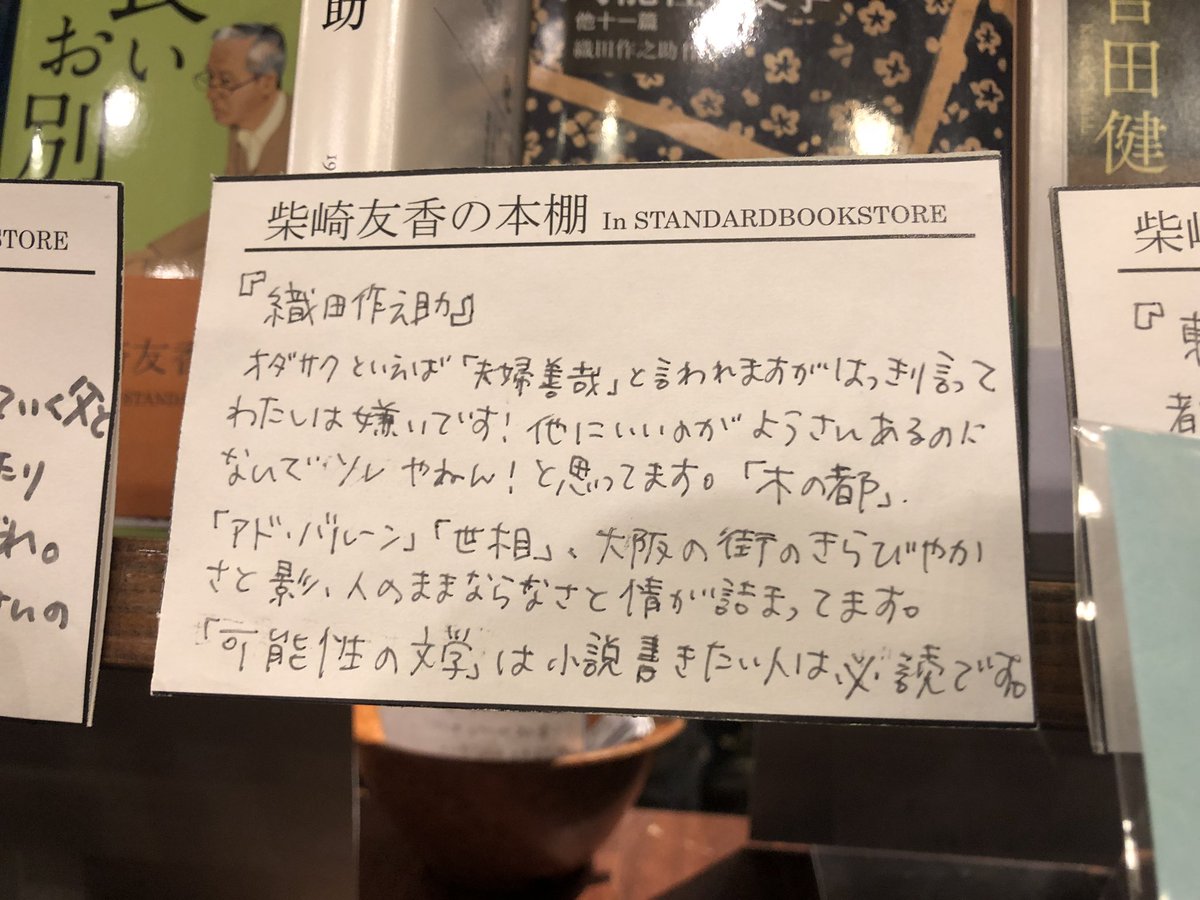 長い
お別
助
19
他十一篇
織田作之助作
吉田健
STORE
ていく父と
たり
れ。
さいの
友香
STANDAR
柴崎友香の本棚 In STANDARDBOOKSTORE
『織田作之助』
オダサクといえば「夫婦善哉」と言われますがはっきり言って
わたしは嫌いです!他にいいのがようさんあるのに
なんでソレやねん!と思ってます。「木の都」、
「アド・バルーン」「世相」、大阪の街のきらびやか
さと影、人のままならなさと情が詰まってます。
「可能性の文学」は小説書きたい人は必読です。
柴崎
『東
都